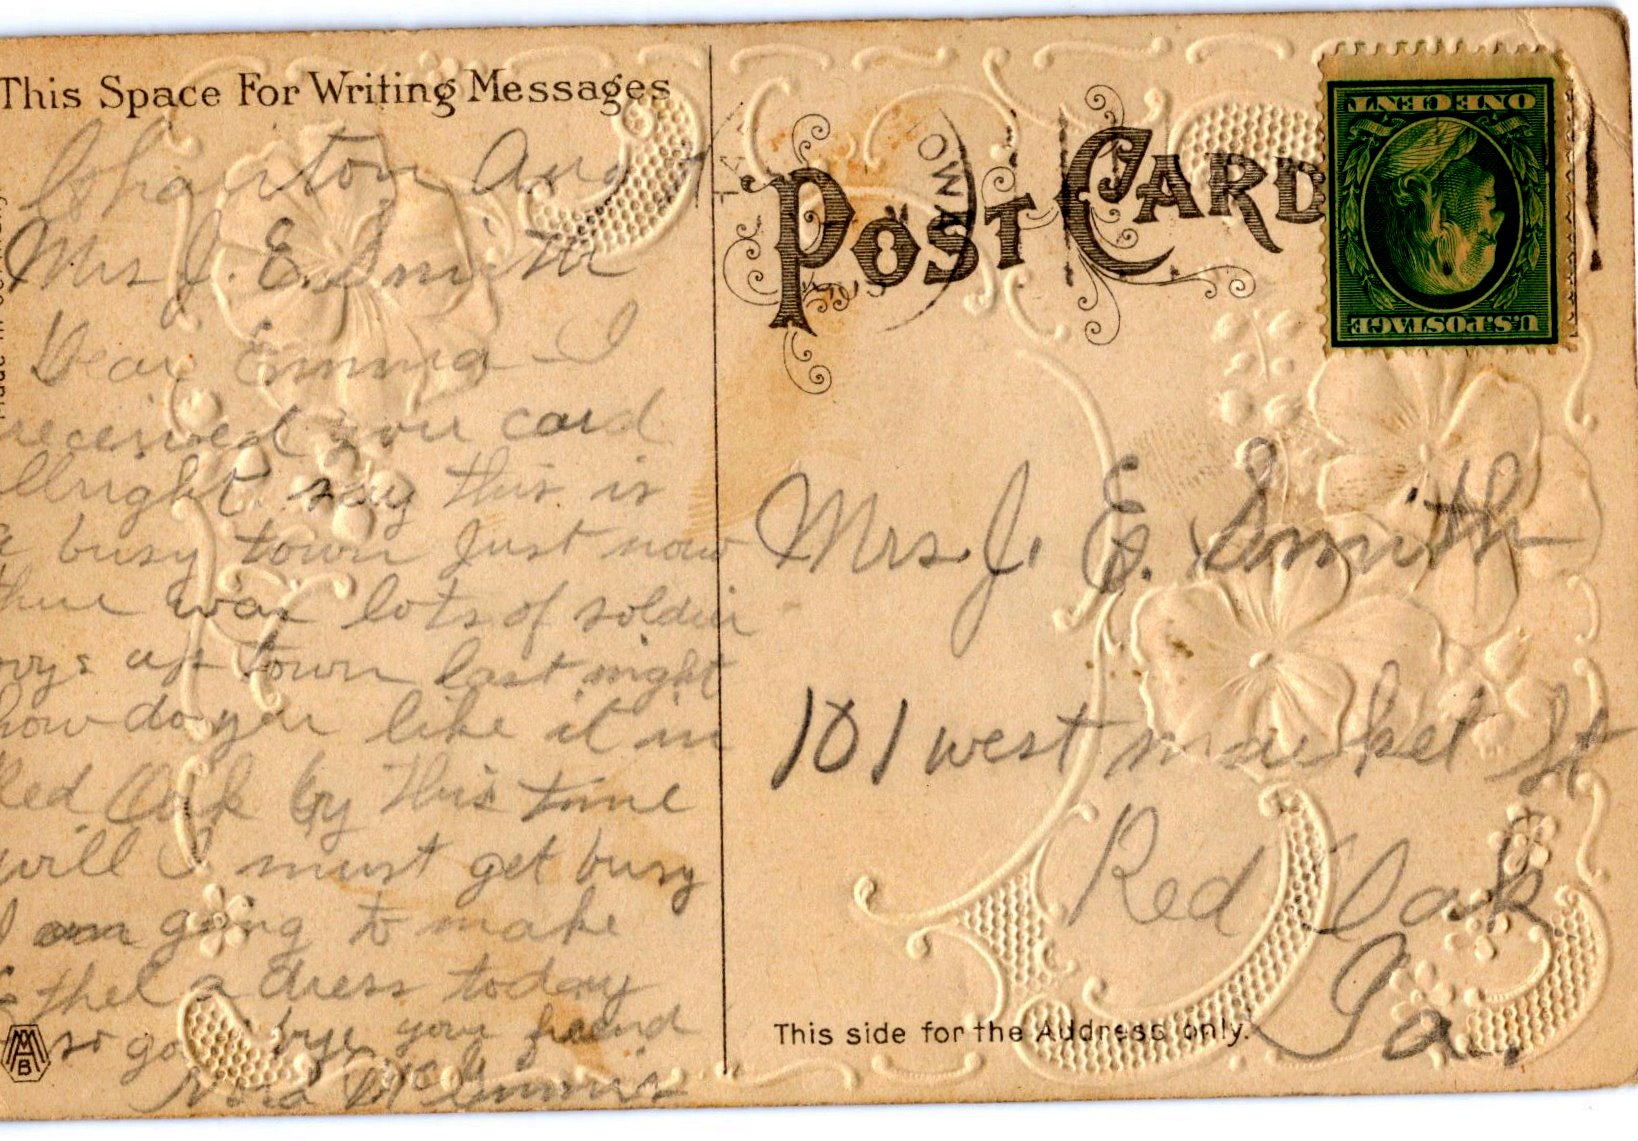 This Space For Writing Messages
Chariton Aug
Mrs J. E. Smith
Dear Emma I
received your card
allright say this is
a busy town Just now
there was lots of soldier
boys up town last night
how do you like it in
Red Oak by this time
will I must get busy
I am going to make
Ethel a dress today
so good bye your friend
Nora
POST CARD
IOWA
ONE CENT
U.S. POSTAGE
Mrs. J. E. Smith
101 west market St
Red Oak
Ia.
This side for the Address only.
MAB